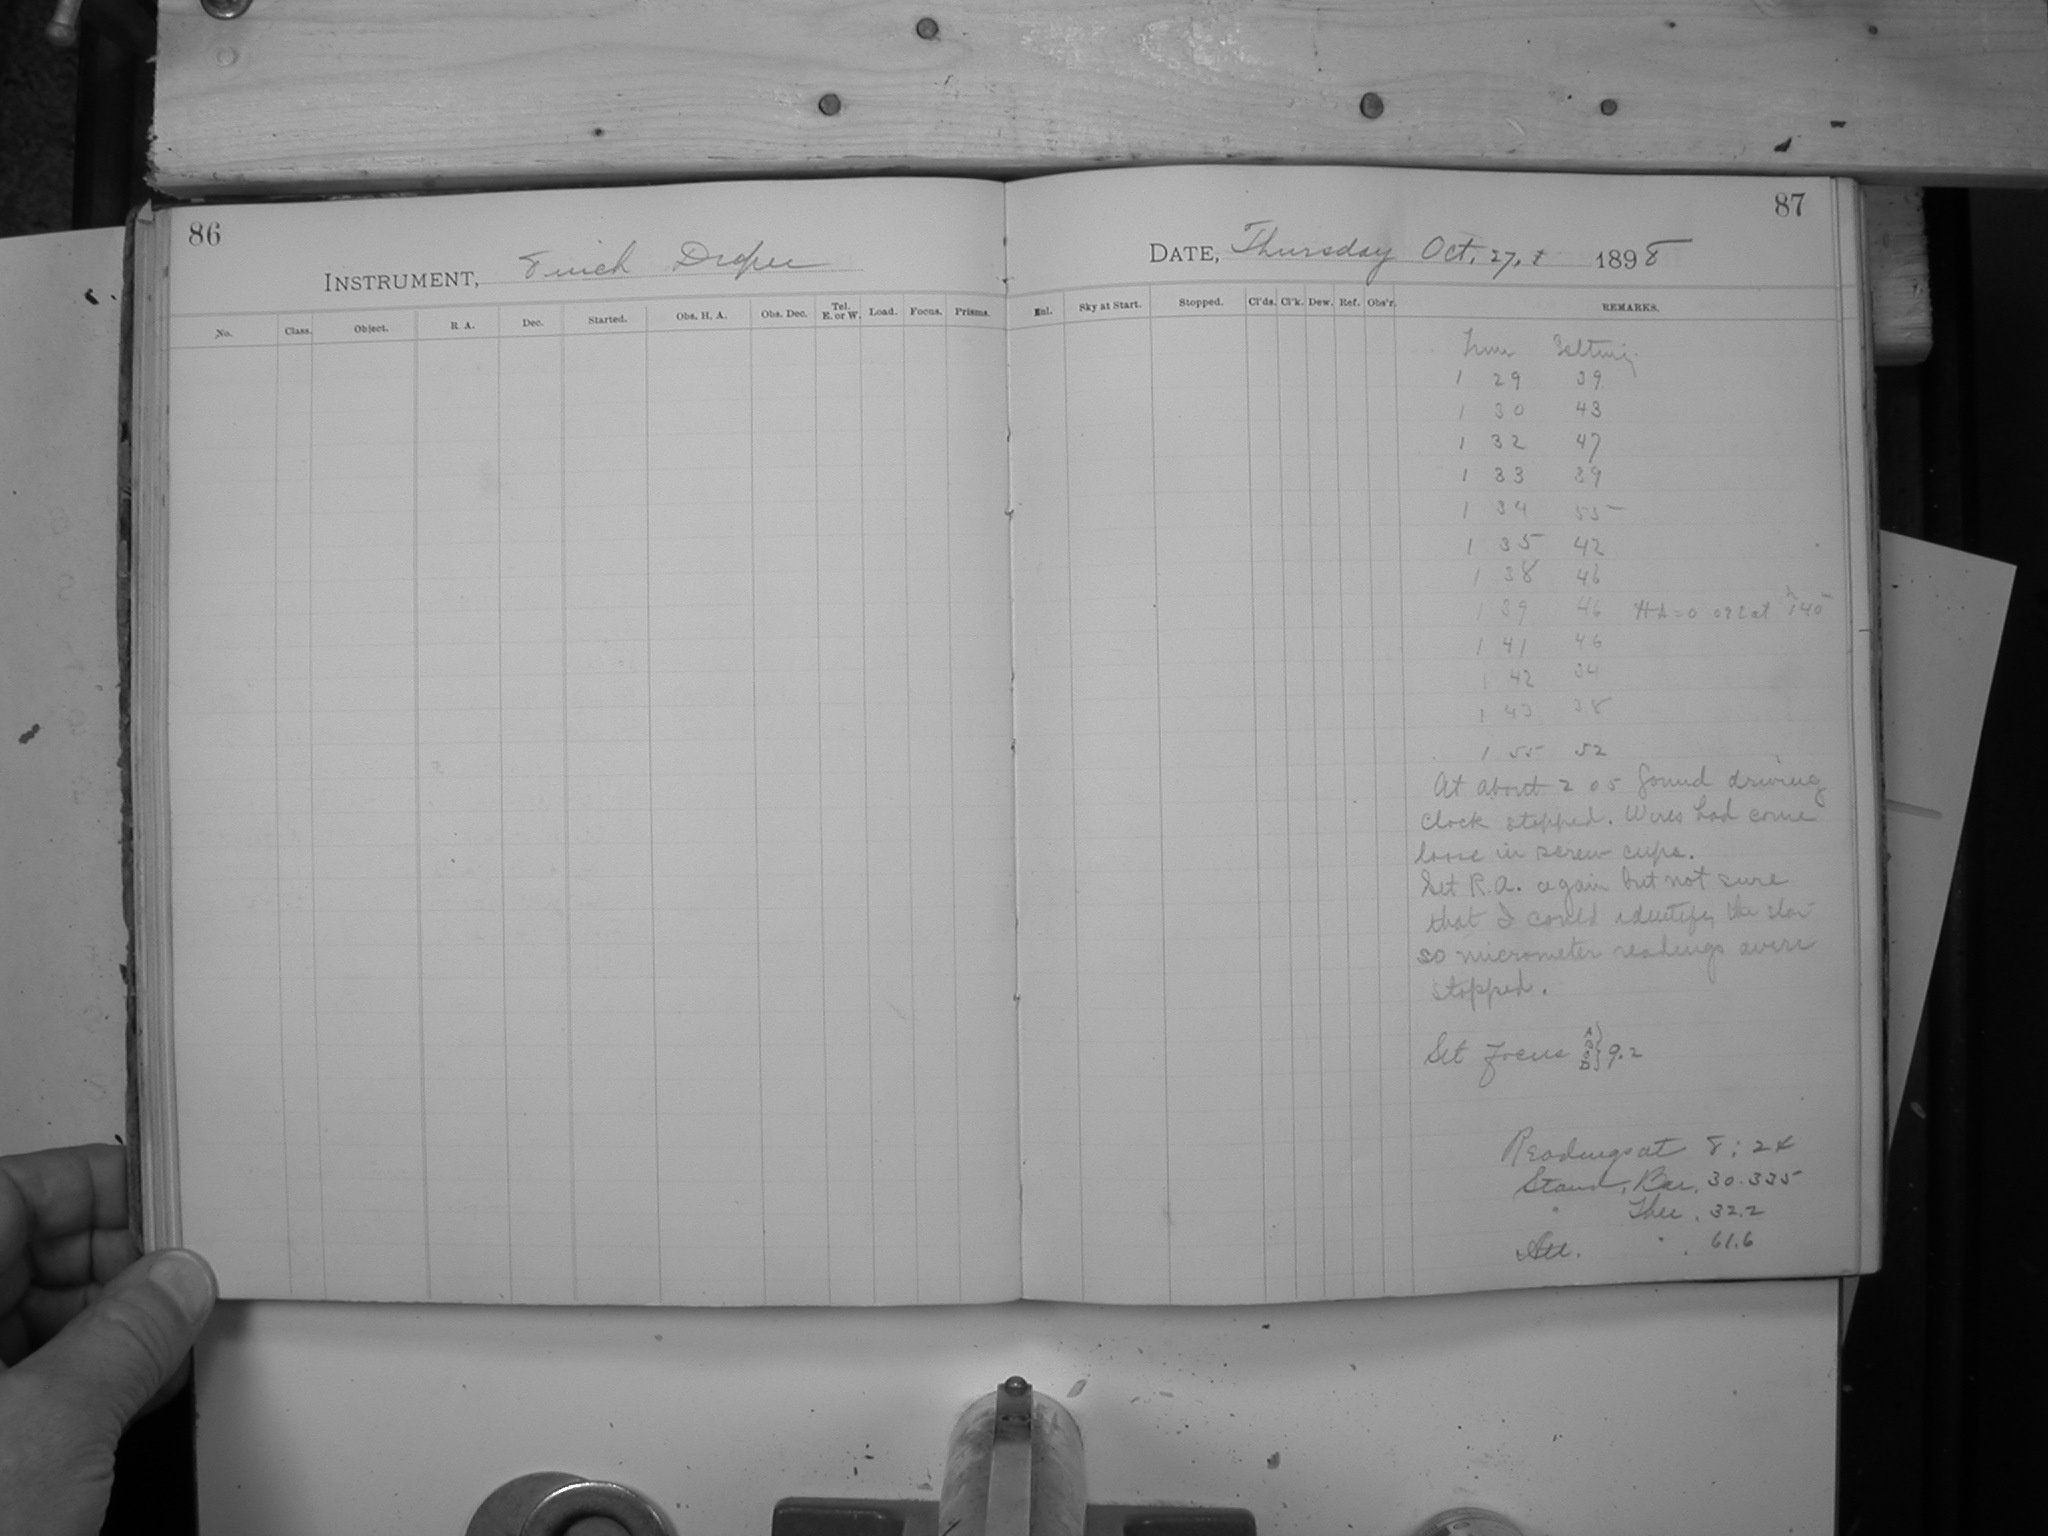 86
INSTRUMENT, 8 inch Draper
No. Class. Object. R. A. Dec. Started. Obs. H. A. Obs. Dec. Tel. E. or W. Load. Focus. Prisms.
87
DATE, Thursday Oct. 27, 1898
Enl. Sky at Start. Stopped. Cl'ds. Cl'k. Dew. Ref. Obs'r. REMARKS.
Time Setting
1 29 39
1 30 43
1 32 47
1 33 39
1 34 55
1 35 42
1 38 46
1 39 46 HA=0 at 1h 40m
1 41 46
1 42 34
1 43 38
1 55 52
At about 2 05 found driving
clock stopped. Wires had come
loose in screw cups.
Set R.A. again but not sure
that I could identify the star
so micrometer readings were
stopped.
Set focus A B C D } 9.2
Readings at 8:24
Stand. Bar. 30.335
" Ther. 32.2
Att. " . 61.6